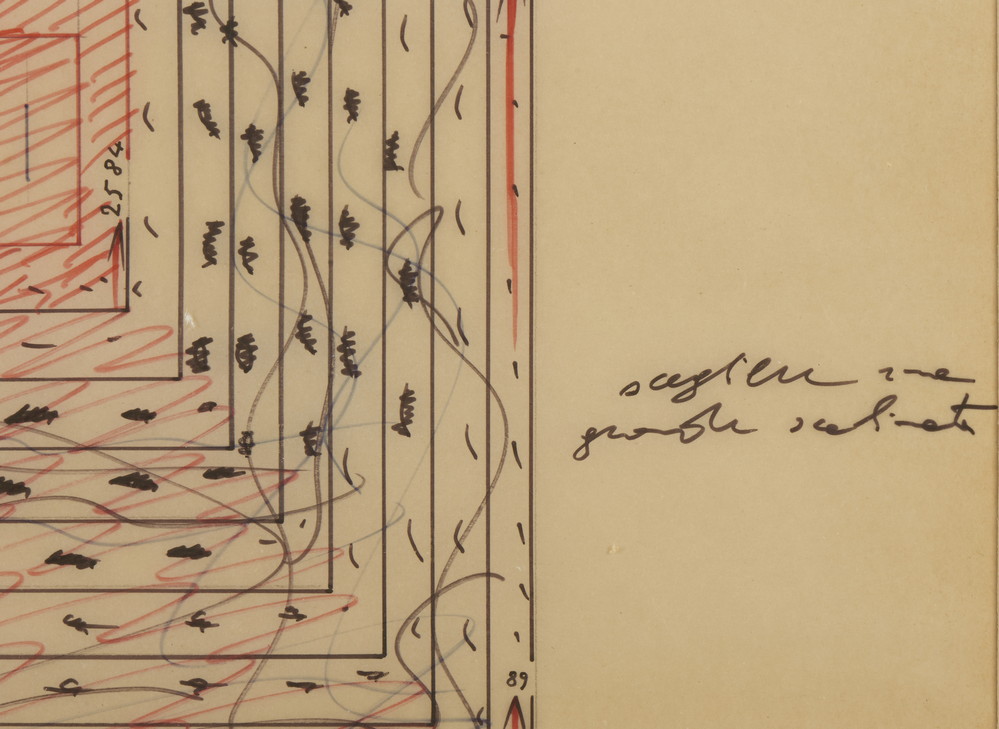 2584
una
grande scalinata
89